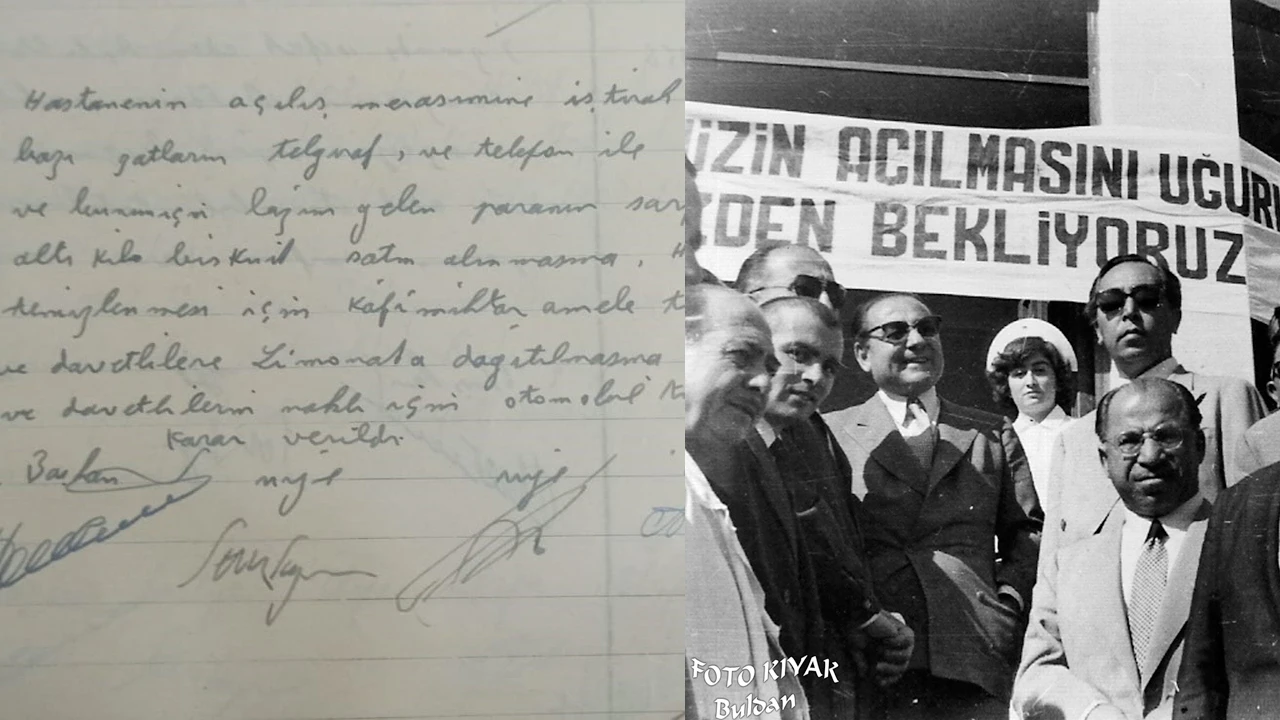 Hastanenin açılış merasimine iştirak
bazı zatların telgraf, ve telefon ile
ve bunun için lazım gelen paranın sarf
altı kilo bisküit satın alınmasına,
temizlenmesi için kâfi miktar amele
ve davetlilere Limonata dağıtılmasına
ve davetlilerin nakli için otomobil
Karar verildi.
Başkan
VİZİN AÇILMASINI UĞUR
ZDEN BEKLİYORUZ
FOTO KIYAK
Buldan